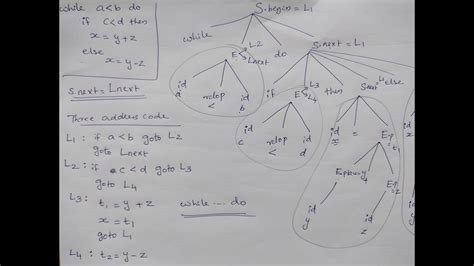 while a<b do
if c<d then
x = y+z
else
x = y-z
S.next = Lnext
Three address code
L1 : if a<b goto L2
goto Lnext
L2 : if c<d goto L3
goto L4
L3 : t1 = y+z
x = t1
goto L1
L4 : t2 = y-z
while .... do
S.begin = L1
while
E
L2
Lnext
do
S.next = L1
id
a
relop
<
id
b
if
E
L3
L4
then
else
id
c
relop
<
id
d
id
x
=
id
y
id
z